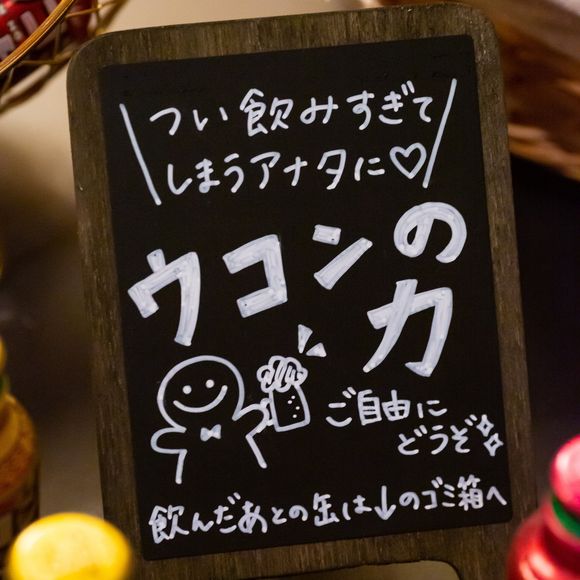 つい飲みすぎて
しまうアナタに♡
ウコンの
力
ご自由に
どうぞ
飲んだあとの缶は↓のゴミ箱へ